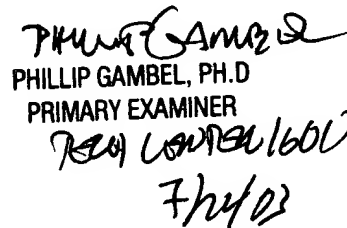 PHILLIP GAMBEL
PHILLIP GAMBEL, PH.D
PRIMARY EXAMINER
TECH CENTER 1600